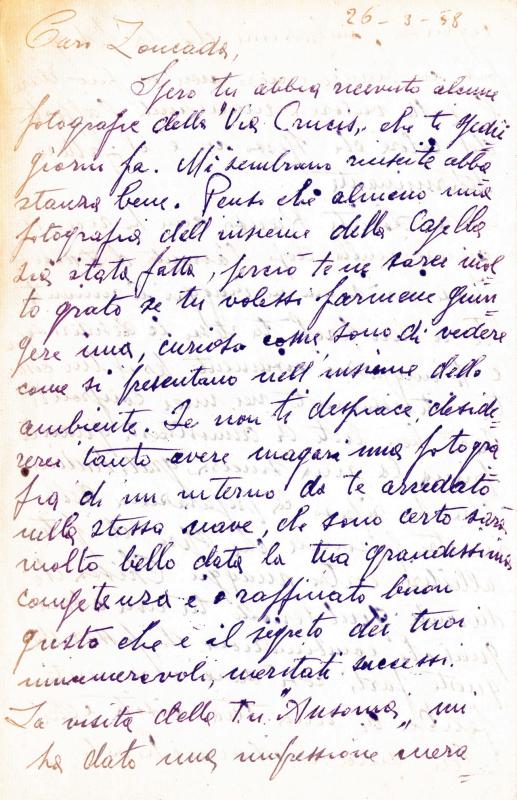 26-3-58
Caro Zoncada,
Spero tu abbia ricevuto alcune
fotografie della "Via Crucis", che ti spedii
giorni fa. Mi sembrano riuscite abba=
stanza bene. Penso che almeno una
fotografia dell'insieme della Capella
sia stata fatta, perciò te ne sarei mol=
to grato se tu volessi farmene giun=
gere una, curioso come sono di vedere
come si presentano nell'insieme dello
ambiente. Se non ti despiace, deside=
rerei tanto avere magari una fotogra=
fia di un interno da te arredato
nella stessa nave, che sono certo sarà
molto bello data la tua grandissima
competenza e raffinato buon
gusto che è il segreto dei tuoi
innumerevoli, meritati successi.
La visita della Tn. "Ausonia" mi
ha dato una impressione mera=